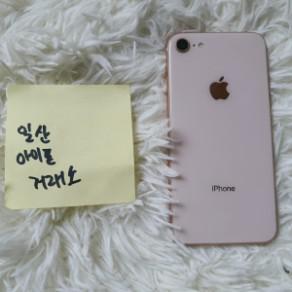 일산
아이폰
거래소
iPhone